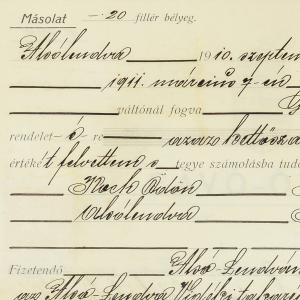 Másolat -·20 fillér bélyeg.
Alsólendva 1910. szeptem
1911. március 7-én
váltónál fogva
rendelet-é re azaz kettősz
értéké t felvettem s tegye számolásba tud
Koch Ödön
Alsólendva
Fizetendő Alsó-Lendván
az Alsó-Lendva Vidéki takar